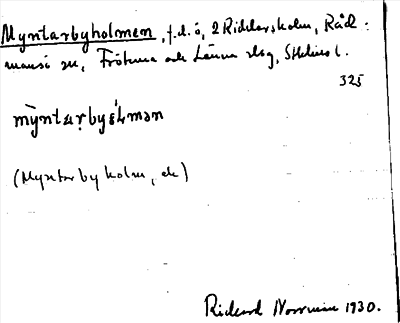 Myntarbyholmen, f.d. ö, 2 Riddersholm, Råd-
mansö sn, Frötuna och Länna skg, Sthlms l.
325
mỳntaṛbyhɷ́lmən
(Myntarby holm, ek)
Rickard Norrman 1930.